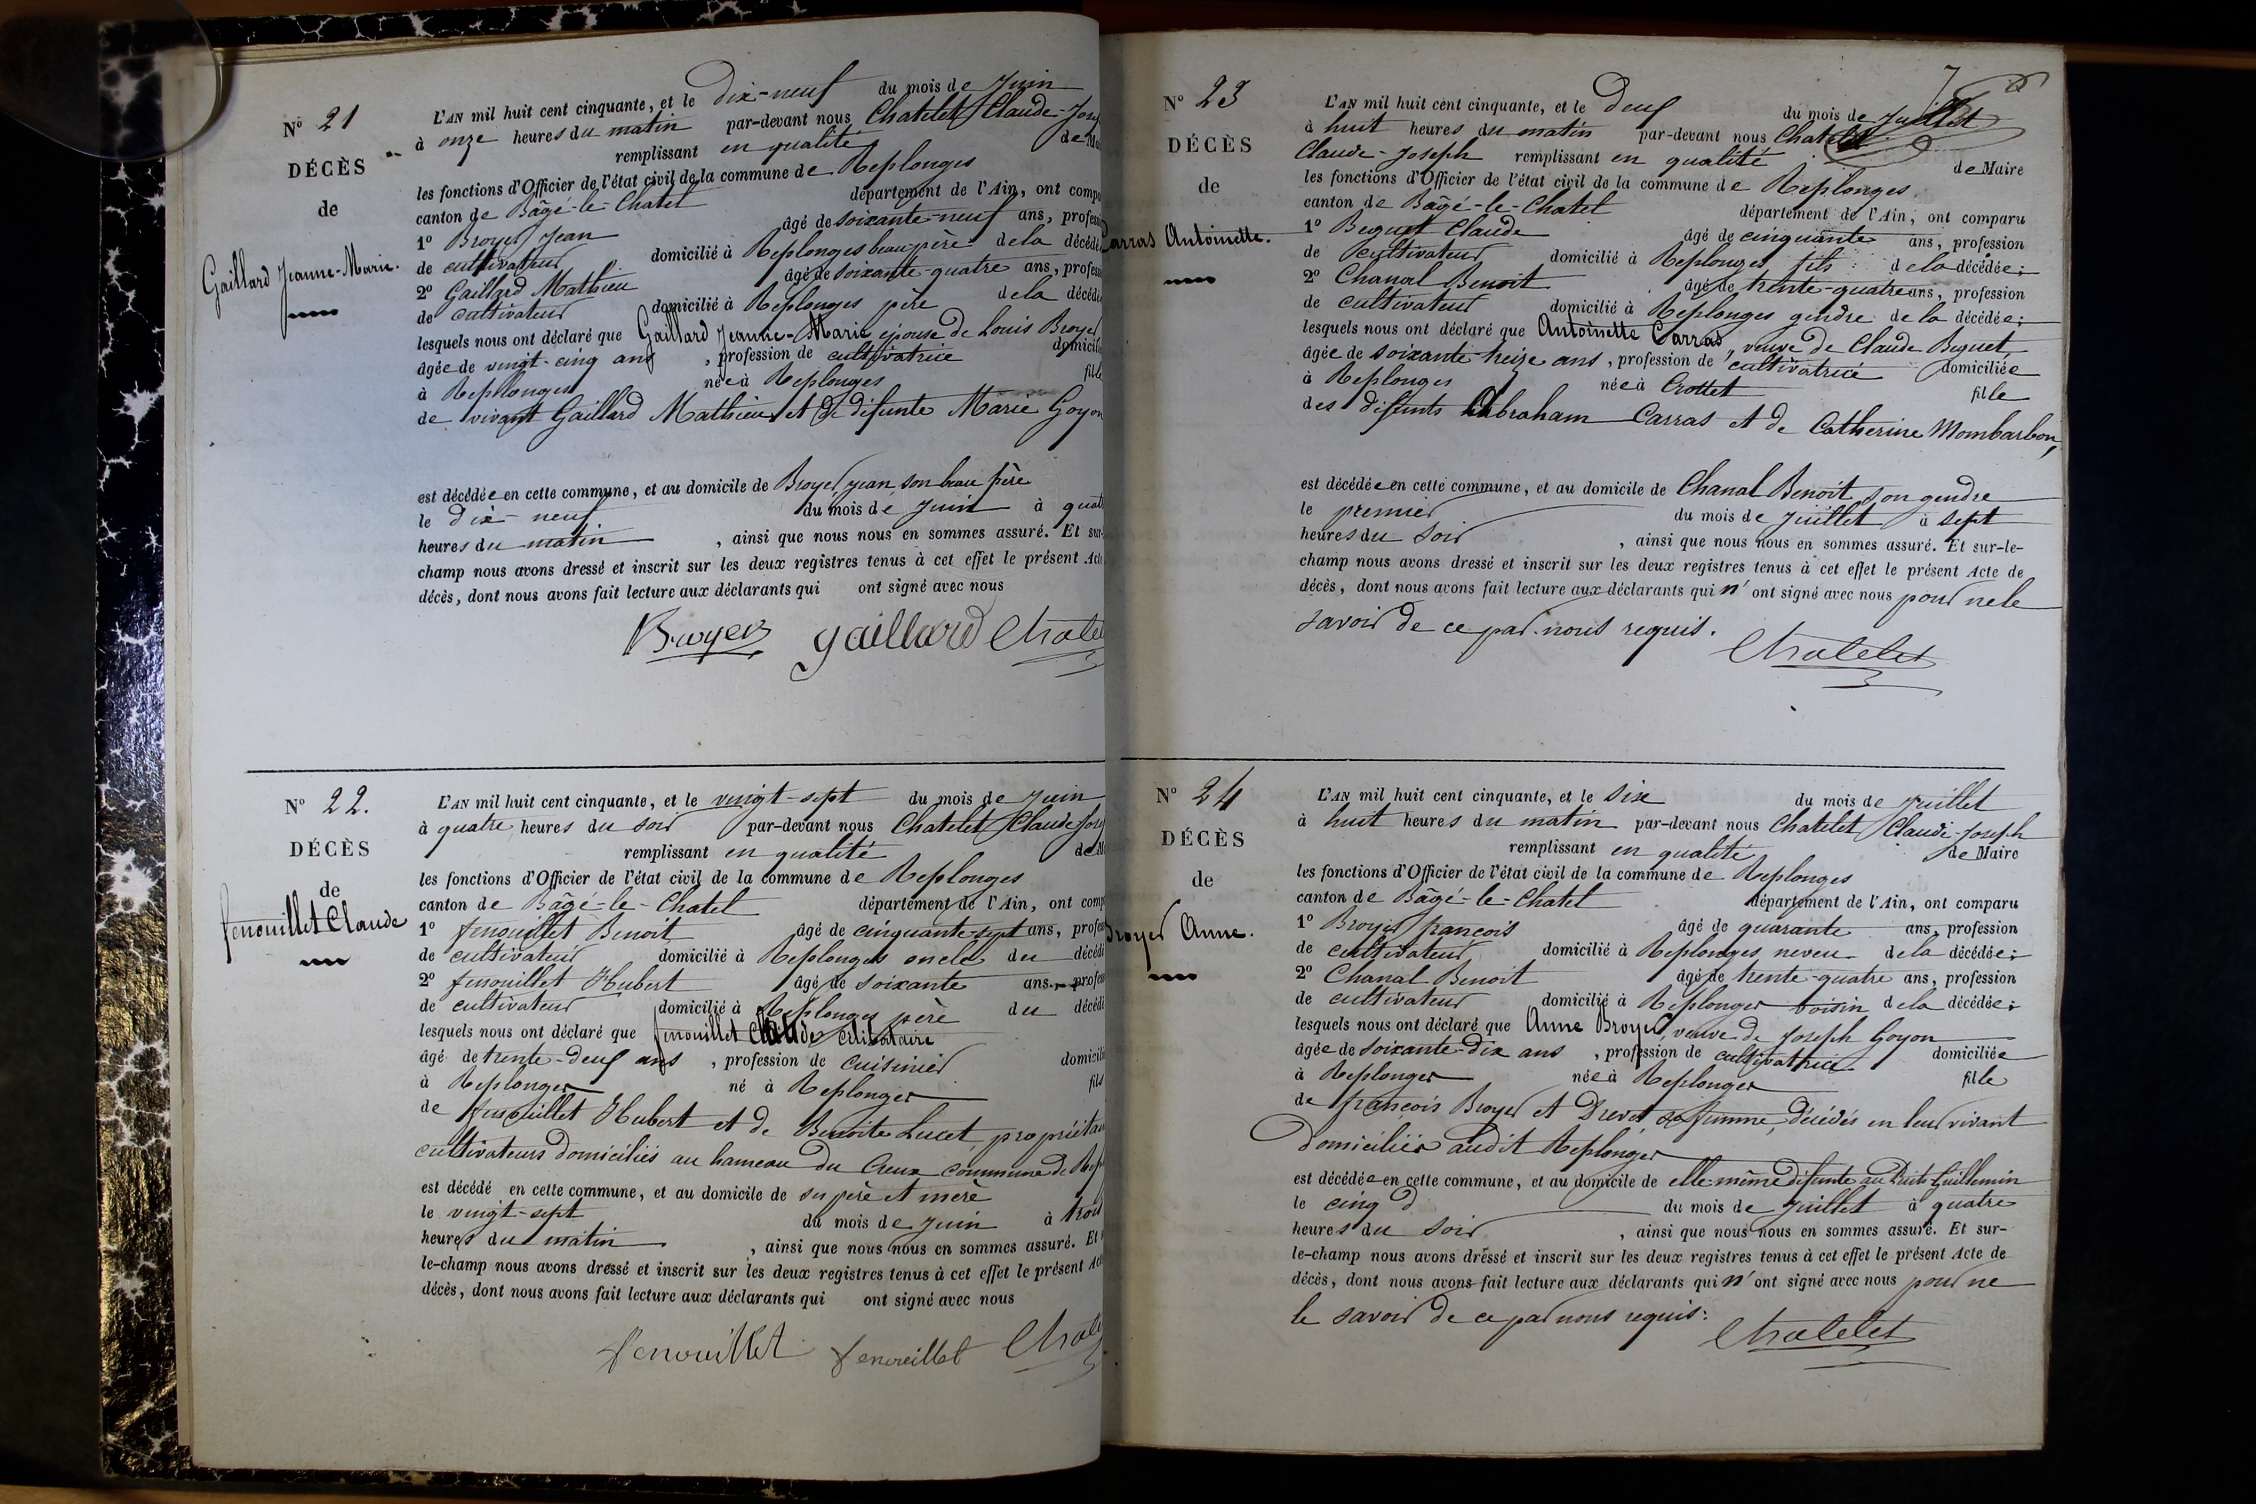 N° 21
DÉCÈS
de
Gaillard Jeanne-Marie.
L'AN mil huit cent cinquante, et le Dix-neuf du mois de Juin
à onze heures du matin par-devant nous Chatelet Claude-Jos
remplissant en qualité de Ma
les fonctions d'Officier de l'état civil de la commune de Replonges
canton de Bâgé-le-Chatel département de l'Ain, ont compa
1° Broyer Jean âgé de soixante-neuf ans, profess
de cultivateur domicilié à Replonges beau père de la décédé
2° Gaillard Mathieu âgé de soixante-quatre ans, profess
de cultivateur domicilié à Replonges père de la décédé
lesquels nous ont déclaré que Gaillard Jeanne-Marie épouse de Louis Broyer
âgée de vingt-cinq ans, profession de cultivatrice domicili
à Replonges née à Replonges fille
de vivant Gaillard Mathieu et de défunte Marie Goyon
est décédée en cette commune, et au domicile de Broyer Jean, son beau père
le dix-neuf du mois de Juin à quat
heures du matin, ainsi que nous nous en sommes assuré. Et sur-
champ nous avons dressé et inscrit sur les deux registres tenus à cet effet le présent Acte
décès, dont nous avons fait lecture aux déclarants qui ont signé avec nous
Broyer gaillard Chatel
N° 22.
DÉCÈS
de
fenouillet Claude
L'AN mil huit cent cinquante, et le vingt-sept du mois de Juin
à quatre heures du soir par-devant nous Chatelet Claude Jos
remplissant en qualité de M
les fonctions d'Officier de l'état civil de la commune de Replonges
canton de Bâgé-le-Chatel département de l'Ain, ont comp
1° fenouillet Benoit âgé de cinquante-sept ans, profess
de cultivateur domicilié à Replonges oncle du décédé
2° fenouillet Hubert âgé de soixante ans, profess
de cultivateur domicilié à Replonges père du décédé
lesquels nous ont déclaré que fenouillet Claude célibataire
âgé de trente-deux ans, profession de cuisinier domicili
à Replonges né à Replonges fils
de fenouillet Hubert et de Benoite Lucet, propriétai
cultivateurs domiciliés au hameau du Creux commune de Repl
est décédé en cette commune, et au domicile de ses père et mère
le vingt-sept du mois de Juin à trois
heures du matin, ainsi que nous nous en sommes assuré. Et
le-champ nous avons dressé et inscrit sur les deux registres tenus à cet effet le présent Act
décès, dont nous avons fait lecture aux déclarants qui ont signé avec nous
fenouillet fenouillet Chatel
7
N° 23
DÉCÈS
de
Carras Antoinette.
L'AN mil huit cent cinquante, et le Deux du mois de Juillet
à huit heures du matin par-devant nous Chatelet
Claude-Joseph remplissant en qualité de Maire
les fonctions d'Officier de l'état civil de la commune de Replonges
canton de Bâgé-le-Chatel département de l'Ain, ont comparu
1° Buguet Claude âgé de cinquante ans, profession
de cultivateur domicilié à Replonges fils de la décédée;
2° Chanal Benoit âgé de trente-quatre ans, profession
de cultivateur domicilié à Replonges gendre de la décédée;
lesquels nous ont déclaré que Antoinette Carras, veuve de Claude Buguet
âgée de soixante treize ans, profession de cultivatrice domiciliée
à Replonges née à Crottet fille
des défunts Abraham Carras et de Catherine Mombarbon,
est décédée en cette commune, et au domicile de Chanal Benoit, son gendre
le premier du mois de Juillet à sept
heures du soir, ainsi que nous nous en sommes assuré. Et sur-le-
champ nous avons dressé et inscrit sur les deux registres tenus à cet effet le présent Acte de
décès, dont nous avons fait lecture aux déclarants qui n'ont signé avec nous pour ne le
savoir de ce par nous requis.
Chatelet
N° 24
DÉCÈS
de
Broyer Anne.
L'AN mil huit cent cinquante, et le six du mois de Juillet
à huit heures du matin par-devant nous Chatelet Claude-Joseph
remplissant en qualité de Maire
les fonctions d'Officier de l'état civil de la commune de Replonges
canton de Bâgé-le-Chatel département de l'Ain, ont comparu
1° Broyer françois âgé de quarante ans, profession
de cultivateur domicilié à Replonges neveu de la décédée;
2° Chanal Benoit âgé de trente-quatre ans, profession
de cultivateur domicilié à Replonges voisin de la décédée;
lesquels nous ont déclaré que Anne Broyer, veuve de Joseph Goyon
âgée de soixante-dix ans, profession de cultivatrice domiciliée
à Replonges née à Replonges fille
de françois Broyer et Drevet sa femme, décédés en leur vivant
domiciliés audit Replonges
est décédée en cette commune, et au domicile de elle-même défunte au Puits Guillemin
le cinq du mois de Juillet à quatre
heures du soir, ainsi que nous nous en sommes assuré. Et sur-
le-champ nous avons dressé et inscrit sur les deux registres tenus à cet effet le présent Acte de
décès, dont nous avons fait lecture aux déclarants qui n'ont signé avec nous pour ne
le savoir de ce par nous requis.
Chatelet